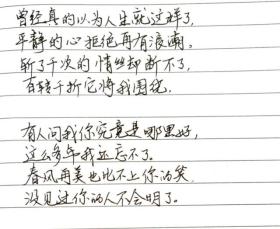 曾经真的以为人生就这样了，
平静的心拒绝再有浪潮。
斩了千次的情丝却断不了，
百转千折它将我围绕。
有人问我你究竟是哪里好，
这么多年我还忘不了。
春风再美也比不上你的笑，
没见过你的人不会明了。